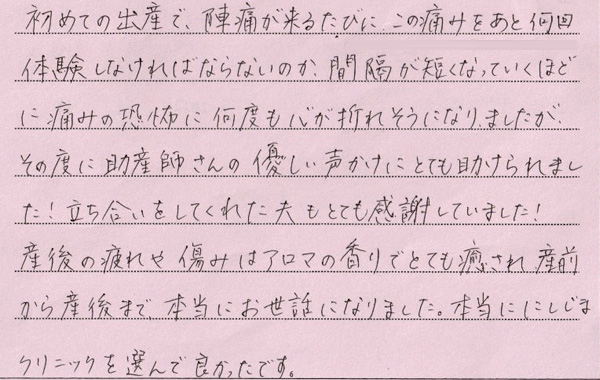 初めての出産で、陣痛が来るたびに、この痛みをあと何回
体験しなければならないのか、間隔が短くなっていくほど
に痛みの恐怖に何度も心が折れそうになり、ましたが、
その度に助産師さんの優しい声かけにとても助けられまし
た！立ち合いをしてくれた夫もとても感謝していました！
産後の疲れや傷みはアロマの香りでとても癒され、産前
から産後まで、本当にお世話になりました。本当ににしじま
クリニックを選んで良かったです。